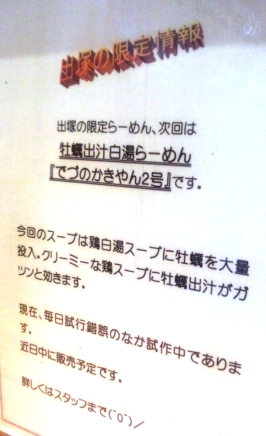 出塚の限定情報
出塚の限定らーめん、次回は
牡蠣出汁白湯らーめん
『でづのかきやん2号』です。
今回のスープは鶏白湯スープに牡蠣を大量
投入。クリーミーな鶏スープに牡蠣出汁がガ
ツンと効きます。
現在、毎日試行錯誤のなか試作中でありま
す。
近日中に販売予定です。
詳しくはスタッフまで(^0^)／